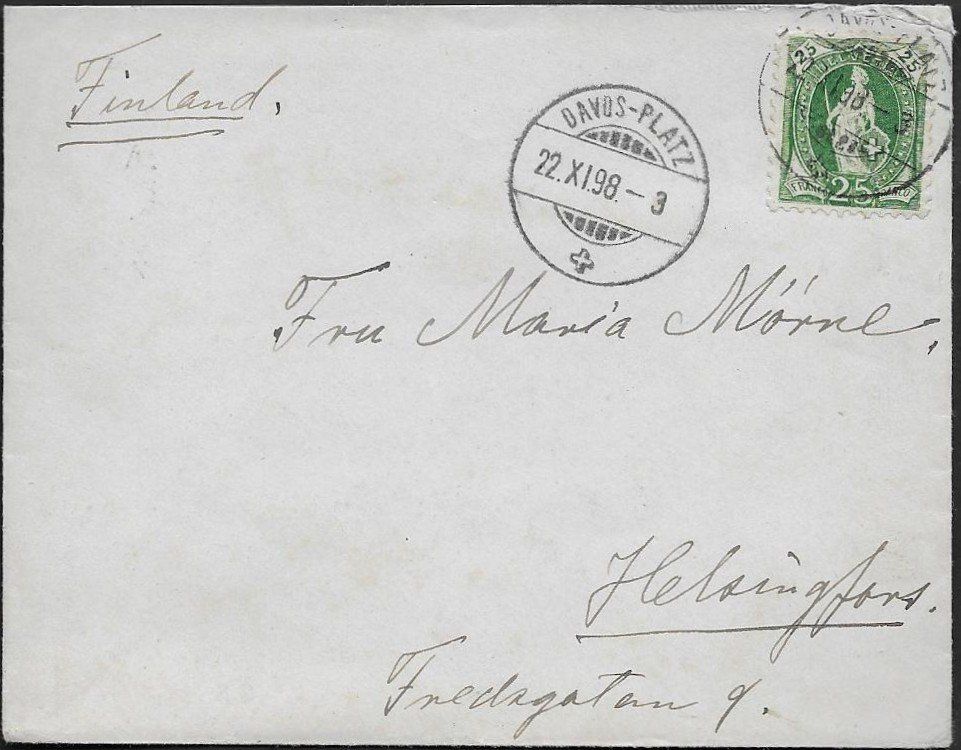 Finland.
DAVOS-PLATZ
22.XI.98.-3
DAVOS-PLATZ
25 HELVETIA 25
FRANCO 25 FRANCO
Fru Maria Mörne.
Helsingfors.
Fredsgatan 9.